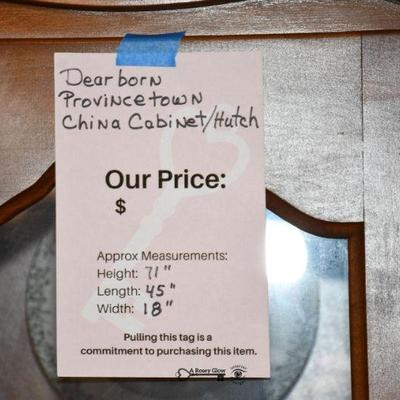 Dearborn
Provincetown
China Cabinet/Hutch
Our Price:
$
Approx Measurements:
Height: 71"
Length: 45"
Width: 18"
Pulling this tag is a
commitment to purchasing this item.
A Rosey Glow